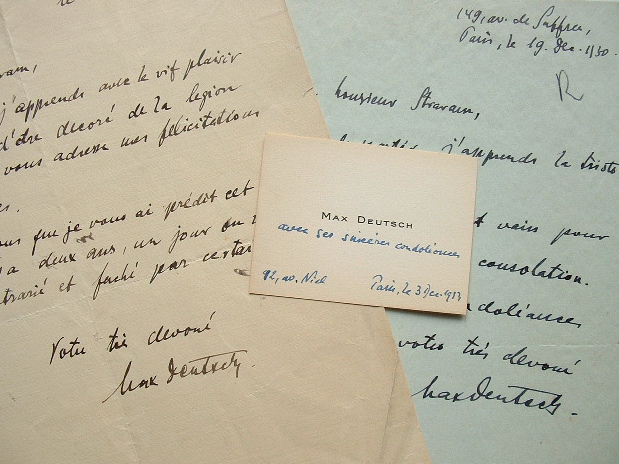 j'apprends avec le vif plaisir
d'être decoré de la legion
vous adresse mes félicitations
je vous ai prédit cet
a deux ans, un jour ou
et faché par certai
Votre très devoué
Max Deutsch.
149, av. de Suffren,
Paris, le 19. Dec. 1930.
R
Monsieur Straram,
j'apprends la triste
vain pour
consolation.
doléances
votre très devoué
Max Deutsch.
MAX DEUTSCH
avec ses sincères condoléances
92, av. Niel Paris, le 3 Dec.